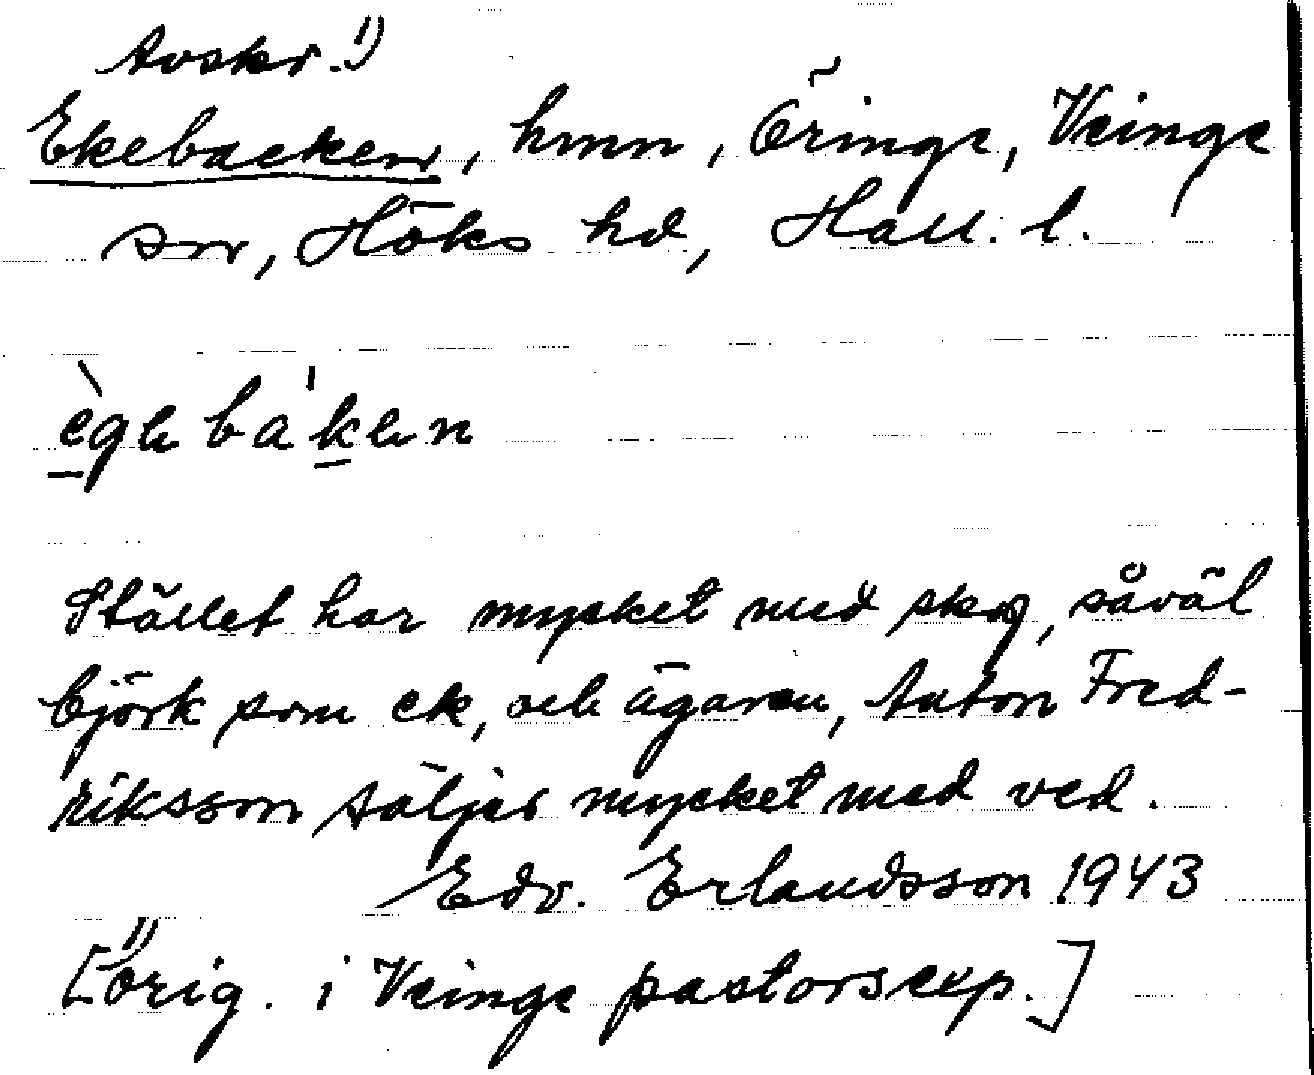 Avskr.¹)
Ekebacken, hmn, Öringe, Veinge
sn, Höks hd, Hall. l.
ègəbáken
Stället har mycket med skog, såväl
björk som ek, och ägaren, Anton Fred-
riksson säljer mycket med ved.
Edv. Erlandsson 1943
[¹) Orig. i Veinge pastorsexp.]